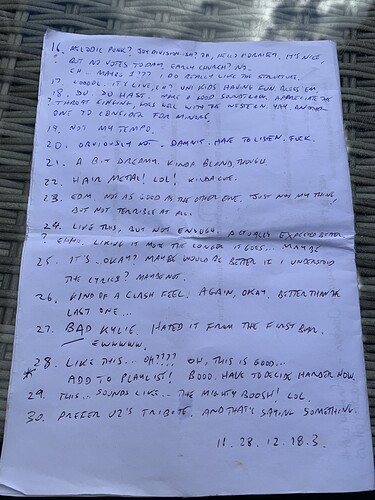 16. MELODIC PUNK? JOY DIVISION-ISH? OH, HELLO MORNISEY. IT'S NICE,
BUT NO VOTES TODAY. EARLY CHURCH? NO.
EH - MAYBE 1??? I DO REALLY LIKE THE STRUCTURE.
17. LOADED. IT'S LIVE, EH? UNI KIDS HAVING FUN. BLESS 'EM.
18. DU DU HAST. MAKE A GOOD SOUNDTRACK. APPRECIATE THE
? THROAT SINGING, GOES WELL WITH THE WESTERN. YAH. ANOTHER
ONE TO CONSIDER FOR MINORS.
19. NOT MY TEMPO.
20. OBVIOUSLY NOT. DAMNIT. HAVE TO LISTEN. FUCK.
21. A BIT DREAMY. KINDA BLAND, THOUGH.
22. HAIR METAL! LOL! KINDA CUTE.
23. EDM. NOT AS GOOD AS THE OTHER ONE. JUST NOT MY THING
BUT NOT TERRIBLE AT ALL.
24. LIKE THIS, BUT NOT ENOUGH. ACTUALLY EXPECTED BETTER
? LIKING IT MORE THE LONGER IT GOES... MAYBE
25. IT'S OKAY? MAYBE WOULD BE BETTER IF I UNDERSTOOD
THE LYRICS? MAYBE NOT.
26. KIND OF A CLASH FEEL. AGAIN, OKAY. BETTER THAN THE
LAST ONE...
27. BAD KYLIE. HATED IT FROM THE FIRST BAR.
EWWWWW.
28. LIKE THIS... OH???? OH, THIS IS GOOD...
* ADD TO PLAYLIST! BOOO. HAVE TO DECIDE HARDER NOW.
29. THIS... SOUNDS LIKE... THE MIGHTY BOOSH! LOL.
30. PREFER U2'S TRIBUTE. AND THAT'S SAYING SOMETHING.
11. 28. 12. 18. 3.